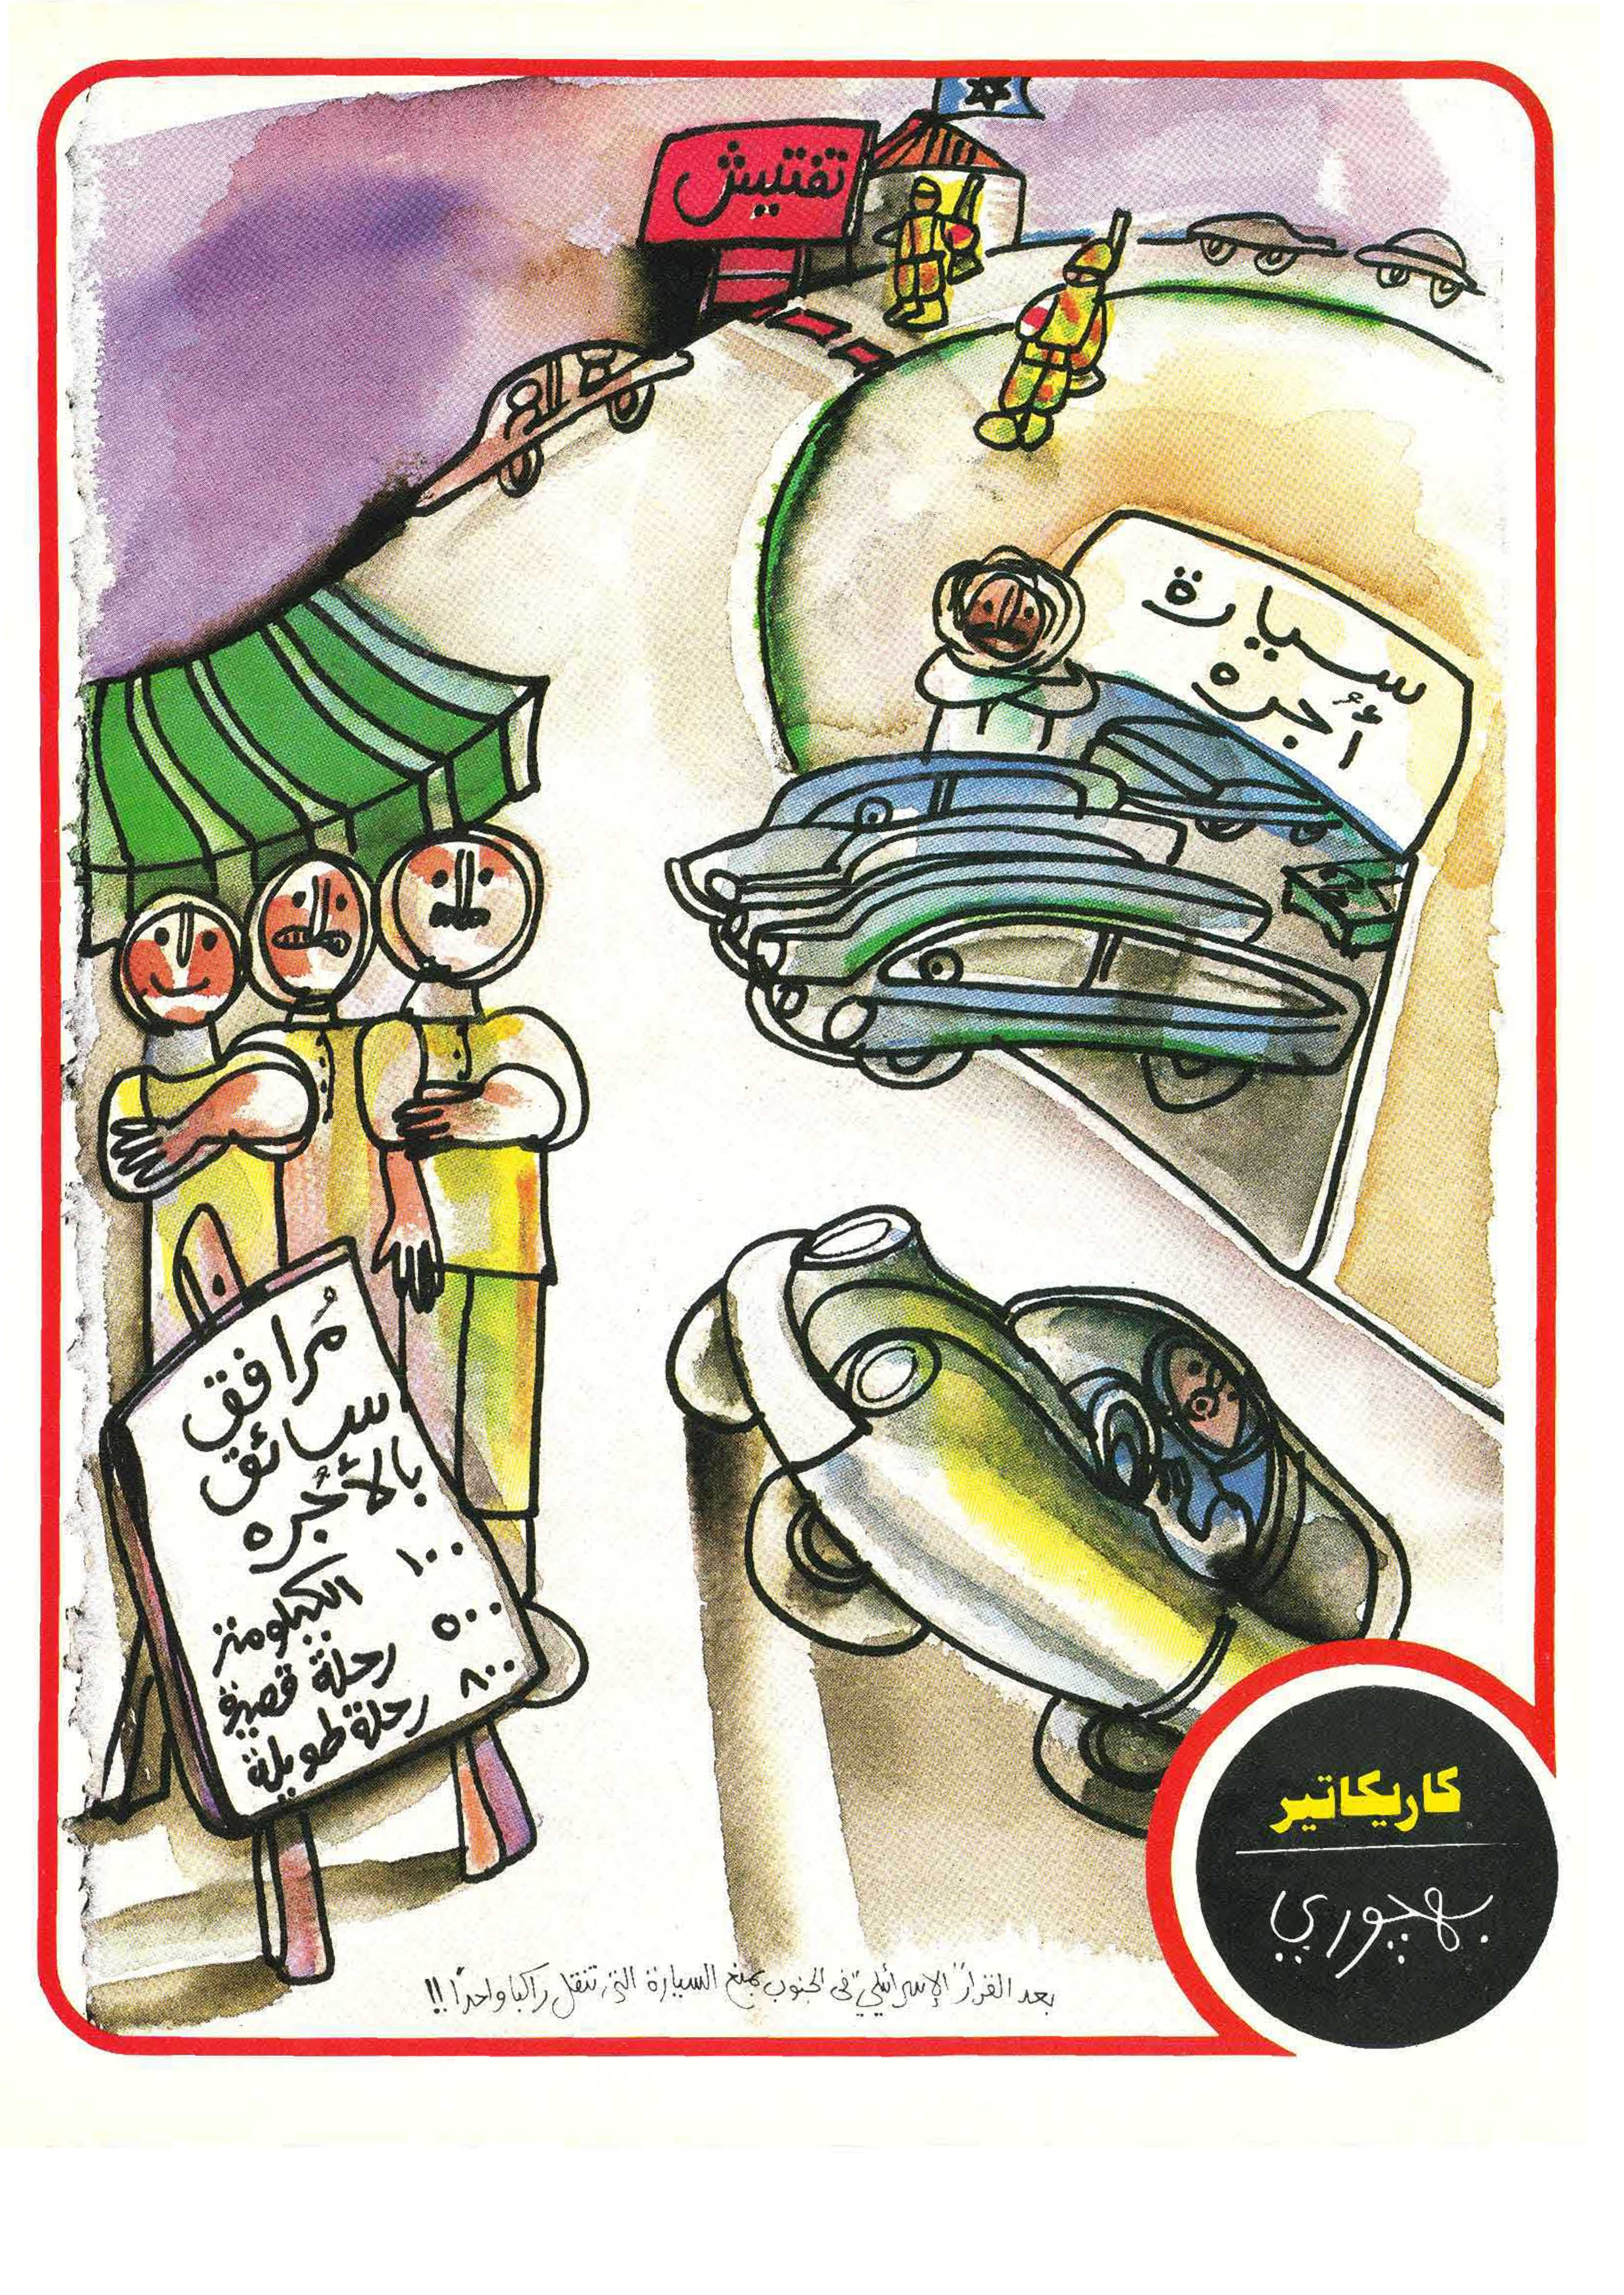 تفتيش
سيارة
أجره
مُرافق
سائق
بالأُجره
الكيلومتر ١٠٠
رحلة قصيرة ٥٠٠
رحلة طويلة ٨٠٠
كاريكاتير
بهجوري
بعد القرار الإسرائيلي في الجنوب بمنع السيارة التي تنقل راكبا واحدًا!!